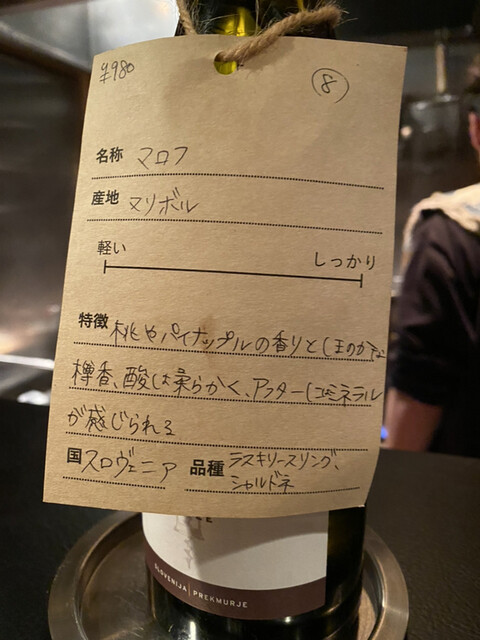 ¥980
⑧
名称 マロフ
産地 マリボル
軽い しっかり
特徴 桃やパイナップルの香りとほのかな
樽香、酸は柔らかく、アフターにミネラル
が感じられる
国 スロヴェニア 品種 ラスキリースリング、
シャルドネ
SLOVENIJA | PREKMURJE